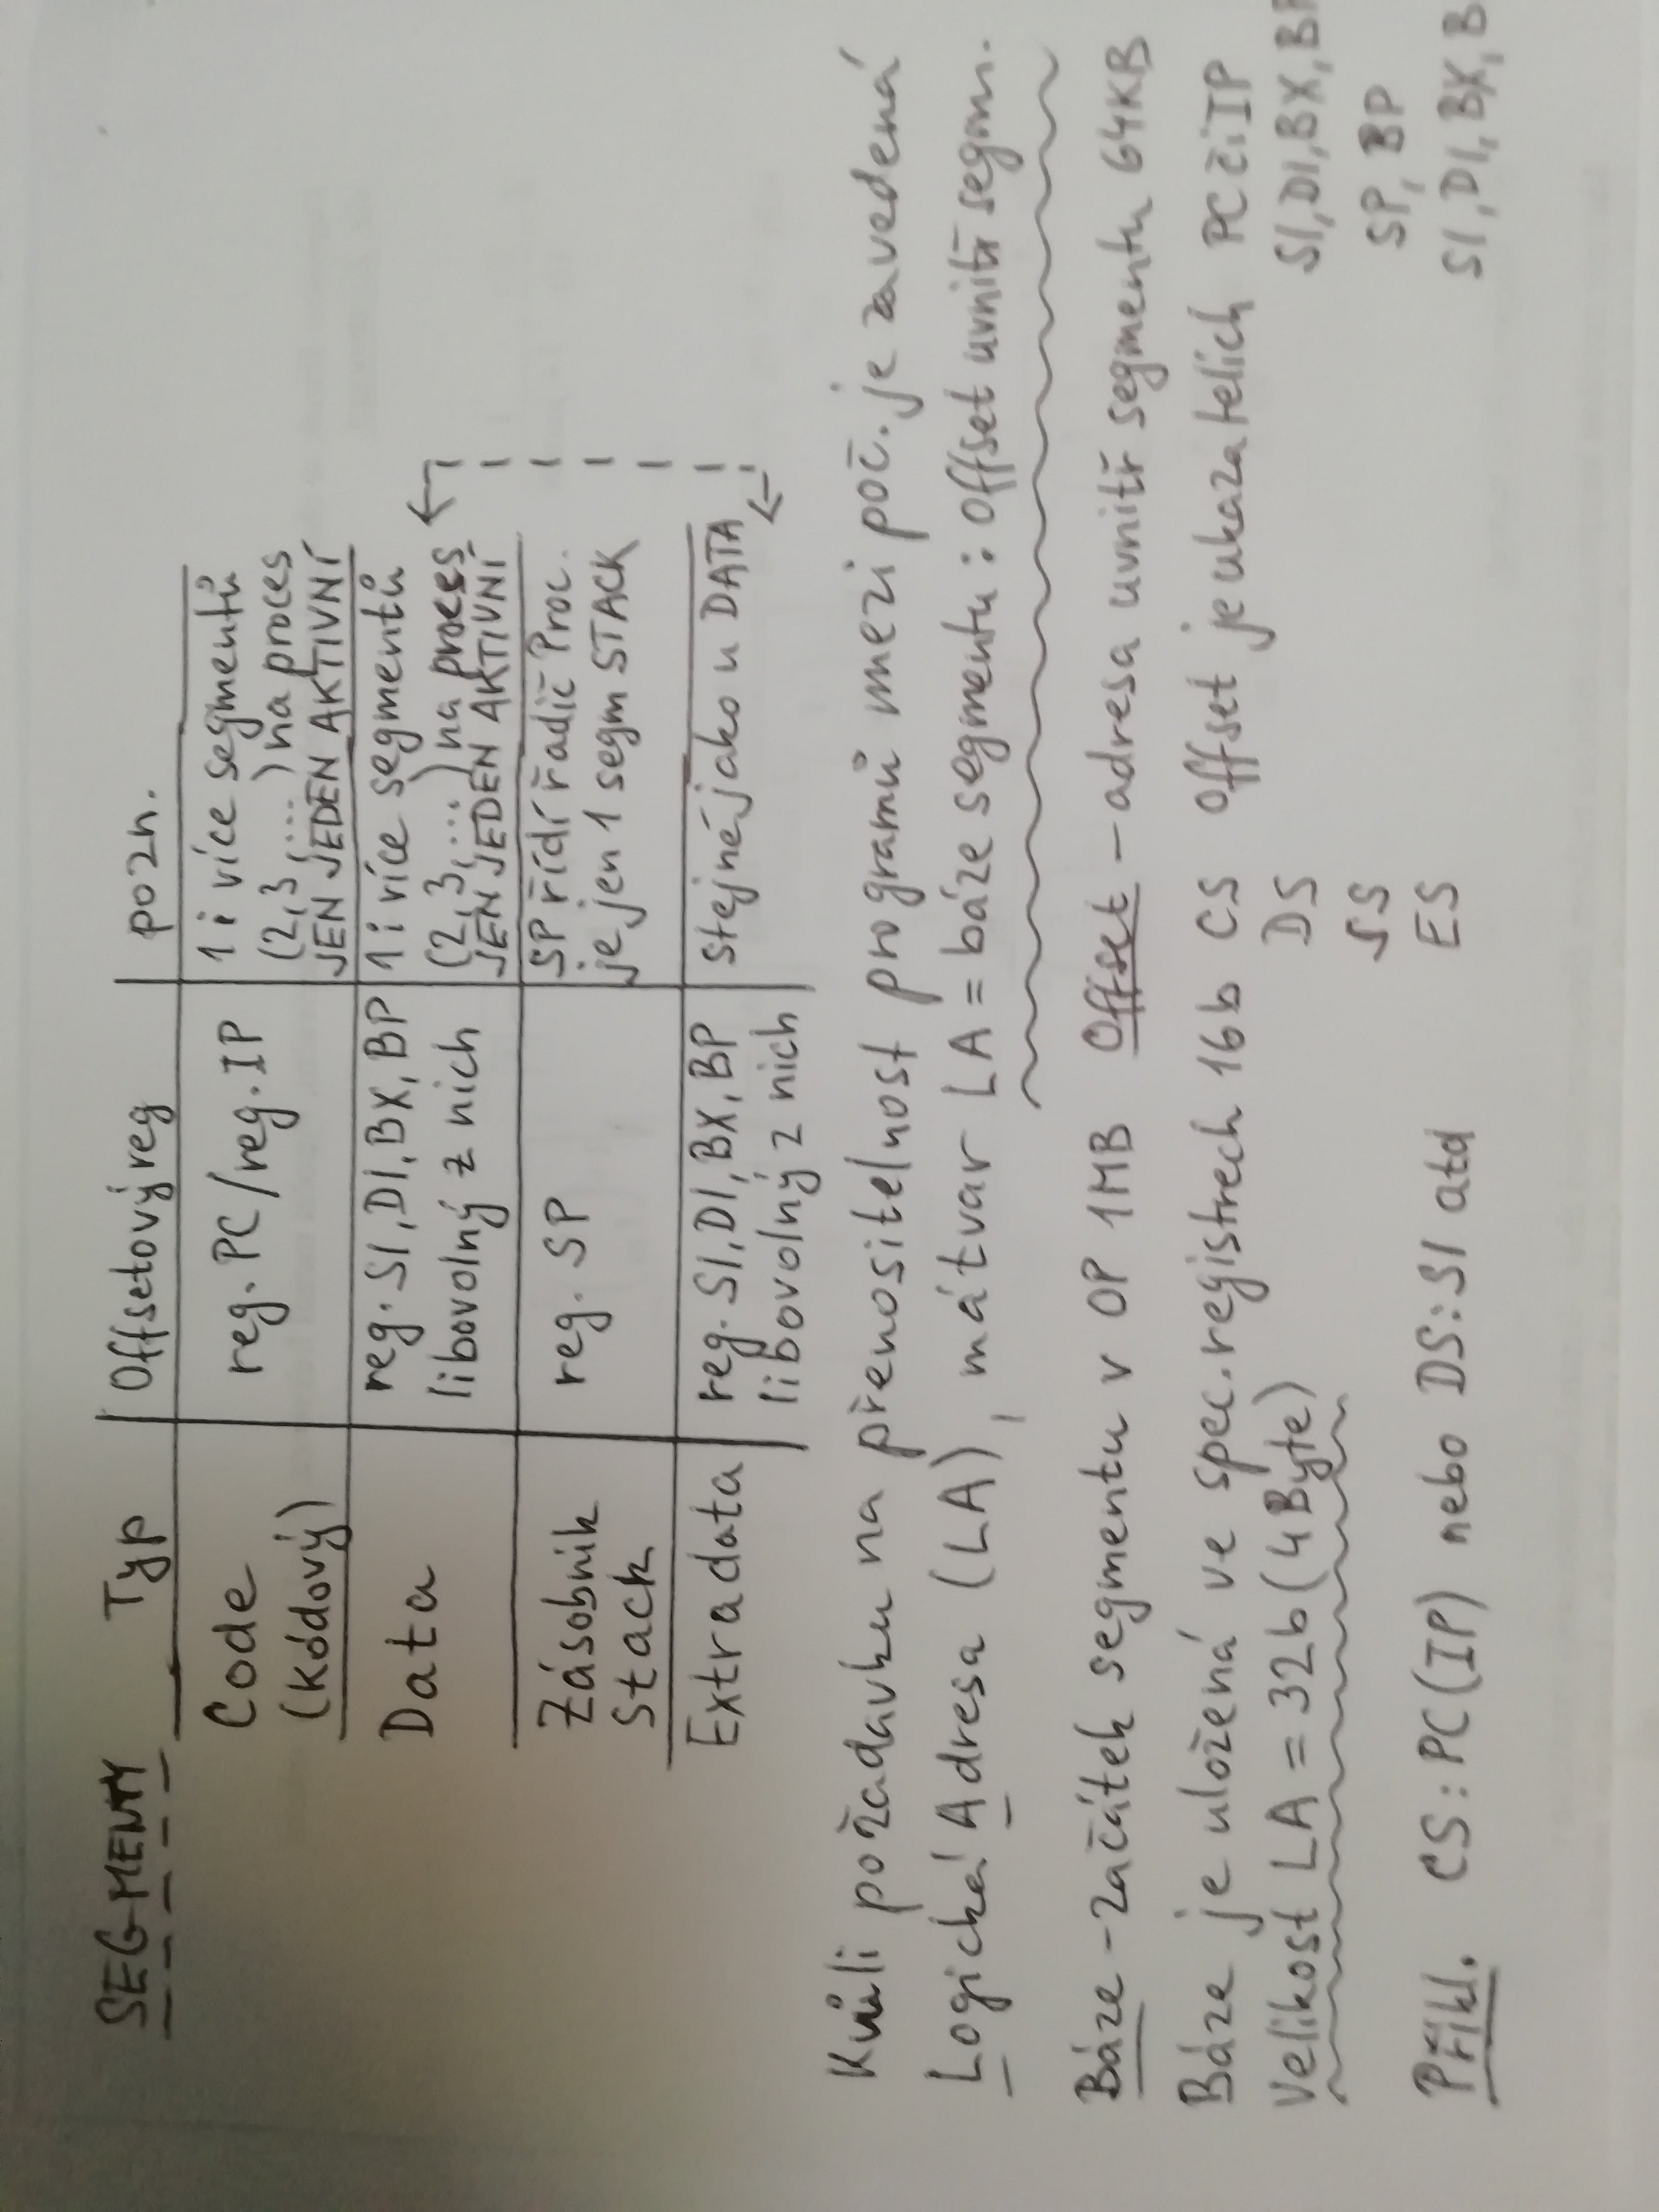 SEGMENTY Typ Offsetový reg pozn.
Code reg. PC/reg. IP 1 i více segmentů
(kódový) (2,3,...) na proces
JEN JEDEN AKTIVNÍ
Data reg. SI, DI, BX, BP 1 i více segmentů
libovolný z nich (2,3,...) na proces
JEN JEDEN AKTIVNÍ
Zásobnik reg. SP SP řídí řadič Proc.
Stack je jen 1 segm STACK
Extra data reg. SI, DI, BX, BP Stejné jako u DATA
libovolný z nich
Kvůli požadavku na přenositelnost programů mezi poč. je zavedená
Logická Adresa (LA), má tvar LA = báze segmentu : offset uvnitř segm.
Báze - začátek segmentu v OP 1MB Offset - adresa uvnitř segmentu 64KB
Báze je uložená ve spec. registrech 16b CS Offset je ukazatelich PC či IP
Velikost LA = 32b (4 Byte) DS SI, DI, BX, BP
SS SP, BP
Příkl. CS:PC(IP) nebo DS:SI atd ES SI, DI, BX, B